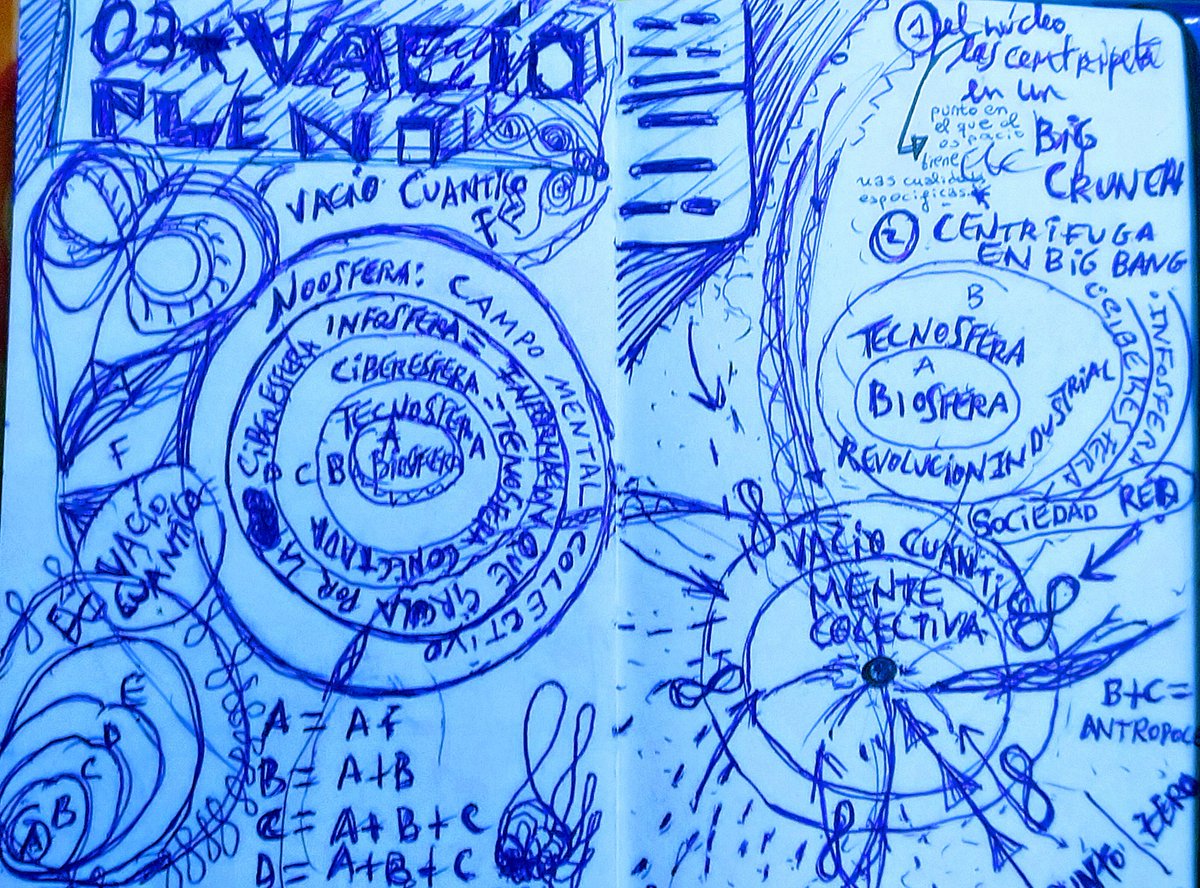 03*VACÍO
PLENO
VACIO CUANTICO
F
NOOSFERA: CAMPO MENTAL COLECTIVO
INFOSFERA = INFORMACION QUE CIRCULA POR LA CIBERESFERA
CIBERESFERA = TECNOSFERA CONECTADA
TECNOSFERA
A
BIOSFERA
D C B
F
VACIO
CUANTICO
E
D
C
B
A
A = A
B = A+B
C = A+B+C
D = A+B+C
1 el núcleo
las centripeta
en un
punto en
el que el
espacio
tiene
BIG
CRUNCH
2 CENTRIFUGA
EN BIG BANG
B
TECNOSFERA
A
BIOSFERA
REVOLUCION INDUSTRIAL
CIBERESFERA
INFOSFERA
SOCIEDAD RED
VACIO CUANTI
MENTE
COLECTIVA
B+C=
ANTROPOC
ZERO
PUNTO